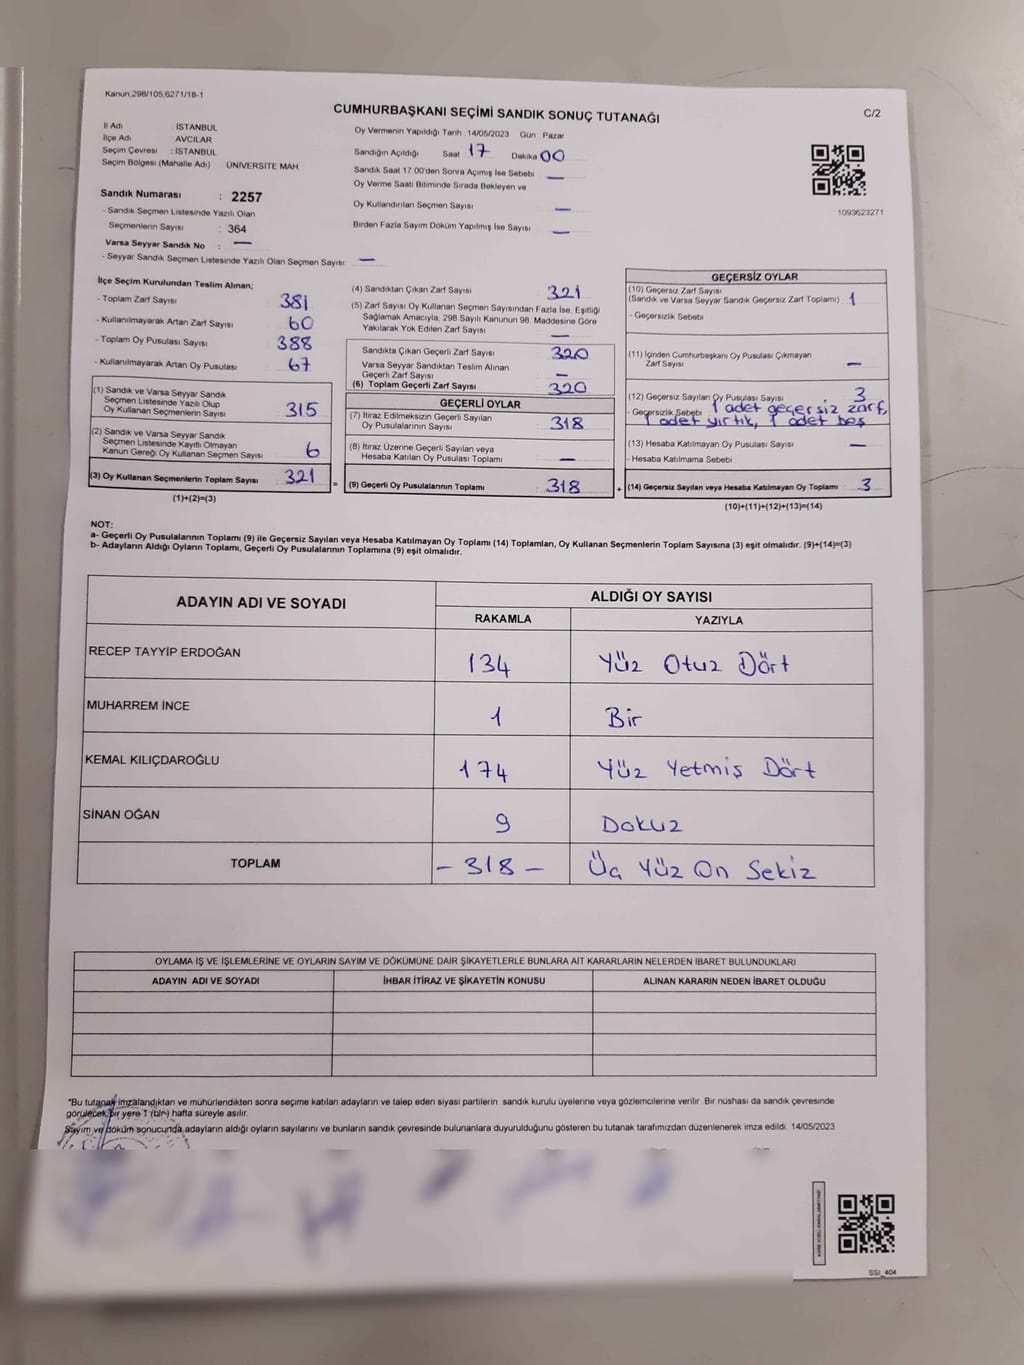 Kanun.298/105,6271/18-1
CUMHURBAŞKANI SEÇİMİ SANDIK SONUÇ TUTANAĞI
C/2
İl Adı İSTANBUL
İlçe Adı AVCILAR
Seçim Çevresi : İSTANBUL
Seçim Bölgesi (Mahalle Adı) ÜNİVERSİTE MAH
Sandık Numarası : 2257
- Sandık Seçmen Listesinde Yazılı Olan
Seçmenlerin Sayısı : 364
Varsa Seyyar Sandık No : —
- Seyyar Sandık Seçmen Listesinde Yazılı Olan Seçmen Sayısı: —
Oy Vermenin Yapıldığı Tarih 14/05/2023 Gün Pazar
Sandığın Açıldığı Saat 17 Dakika 00
Sandık Saat 17 00'den Sonra Açımış İse Sebebi —
Oy Verme Saati Bitiminde Sırada Bekleyen ve
Oy Kullandırılan Seçmen Sayısı —
Birden Fazla Sayım Döküm Yapılmış İse Sayısı —
1093623271
İlçe Seçim Kurulundan Teslim Alınan;
- Toplam Zarf Sayısı 381
- Kullanılmayarak Artan Zarf Sayısı 60
- Toplam Oy Pusulası Sayısı 388
- Kullanılmayarak Artan Oy Pusulası 67
(1) Sandık ve Varsa Seyyar Sandık
Seçmen Listesinde Yazılı Olup
Oy Kullanan Seçmenlerin Sayısı 315
(2) Sandık ve Varsa Seyyar Sandık
Seçmen Listesinde Kayıtlı Olmayan
Kanun Gereği Oy Kullanan Seçmen Sayısı 6
(3) Oy Kullanan Seçmenlerin Toplam Sayısı 321
(1)+(2)=(3)
=
(4) Sandıktan Çıkan Zarf Sayısı 321
(5) Zarf Sayısı Oy Kullanan Seçmen Sayısından Fazla İse, Eşitliği
Sağlamak Amacıyla; 298 Sayılı Kanunun 98. Maddesine Göre
Yakılarak Yok Edilen Zarf Sayısı —
Sandıkta Çıkan Geçerli Zarf Sayısı 320
Varsa Seyyar Sandıktan Teslim Alınan
Geçerli Zarf Sayısı —
(6) Toplam Geçerli Zarf Sayısı 320
GEÇERLİ OYLAR
(7) İtiraz Edilmeksizin Geçerli Sayılan
Oy Pusulalarının Sayısı 318
(8) İtiraz Üzerine Geçerli Sayılan veya
Hesaba Katılan Oy Pusulası Toplamı —
(9) Geçerli Oy Pusulalarının Toplamı 318
+
GEÇERSİZ OYLAR
(10) Geçersiz Zarf Sayısı
(Sandık ve Varsa Seyyar Sandık Geçersiz Zarf Toplamı) 1
- Geçersizlik Sebebi
(11) İçinden Cumhurbaşkanı Oy Pusulası Çıkmayan
Zarf Sayısı —
(12) Geçersiz Sayılan Oy Pusulası Sayısı 3
- Geçersizlik Sebebi 1 adet geçersiz zarf,
1 adet yırtık, 1 adet boş
(13) Hesaba Katılmayan Oy Pusulası Sayısı —
- Hesaba Katılmama Sebebi
(14) Geçersiz Sayılan veya Hesaba Katılmayan Oy Toplamı 3
(10)+(11)+(12)+(13)=(14)
NOT:
a- Geçerli Oy Pusulalarının Toplamı (9) ile Geçersiz Sayılan veya Hesaba Katılmayan Oy Toplamı (14) Toplamları, Oy Kullanan Seçmenlerin Toplam Sayısına (3) eşit olmalıdır. (9)+(14)=(3)
b- Adayların Aldığı Oyların Toplamı, Geçerli Oy Pusulalarının Toplamına (9) eşit olmalıdır.
ADAYIN ADI VE SOYADI
ALDIĞI OY SAYISI
RAKAMLA YAZIYLA
RECEP TAYYİP ERDOĞAN 134 Yüz Otuz Dört
MUHARREM İNCE 1 Bir
KEMAL KILIÇDAROĞLU 174 Yüz Yetmiş Dört
SİNAN OĞAN 9 Dokuz
TOPLAM — 318 — Üç Yüz On Sekiz
OYLAMA İŞ VE İŞLEMLERİNE VE OYLARIN SAYIM VE DÖKÜMÜNE DAİR ŞİKAYETLERLE BUNLARA AİT KARARLARIN NELERDEN İBARET BULUNDUKLARI
ADAYIN ADI VE SOYADI İHBAR İTİRAZ VE ŞİKAYETİN KONUSU ALINAN KARARIN NEDEN İBARET OLDUĞU
"Bu tutanak imzalandıktan ve mühürlendikten sonra seçime katılan adayların ve talep eden siyasi partilerin sandık kurulu üyelerine veya gözlemcilerine verilir. Bir nüshası da sandık çevresinde
görülecek bir yere 1 (bir) hafta süreyle asılır.
Sayım ve döküm sonucunda adayların aldığı oyların sayılarını ve bunların sandık çevresinde bulunanlara duyurulduğunu gösteren bu tutanak tarafımızdan düzenlenerek imza edildi. 14/05/2023
SSI_404